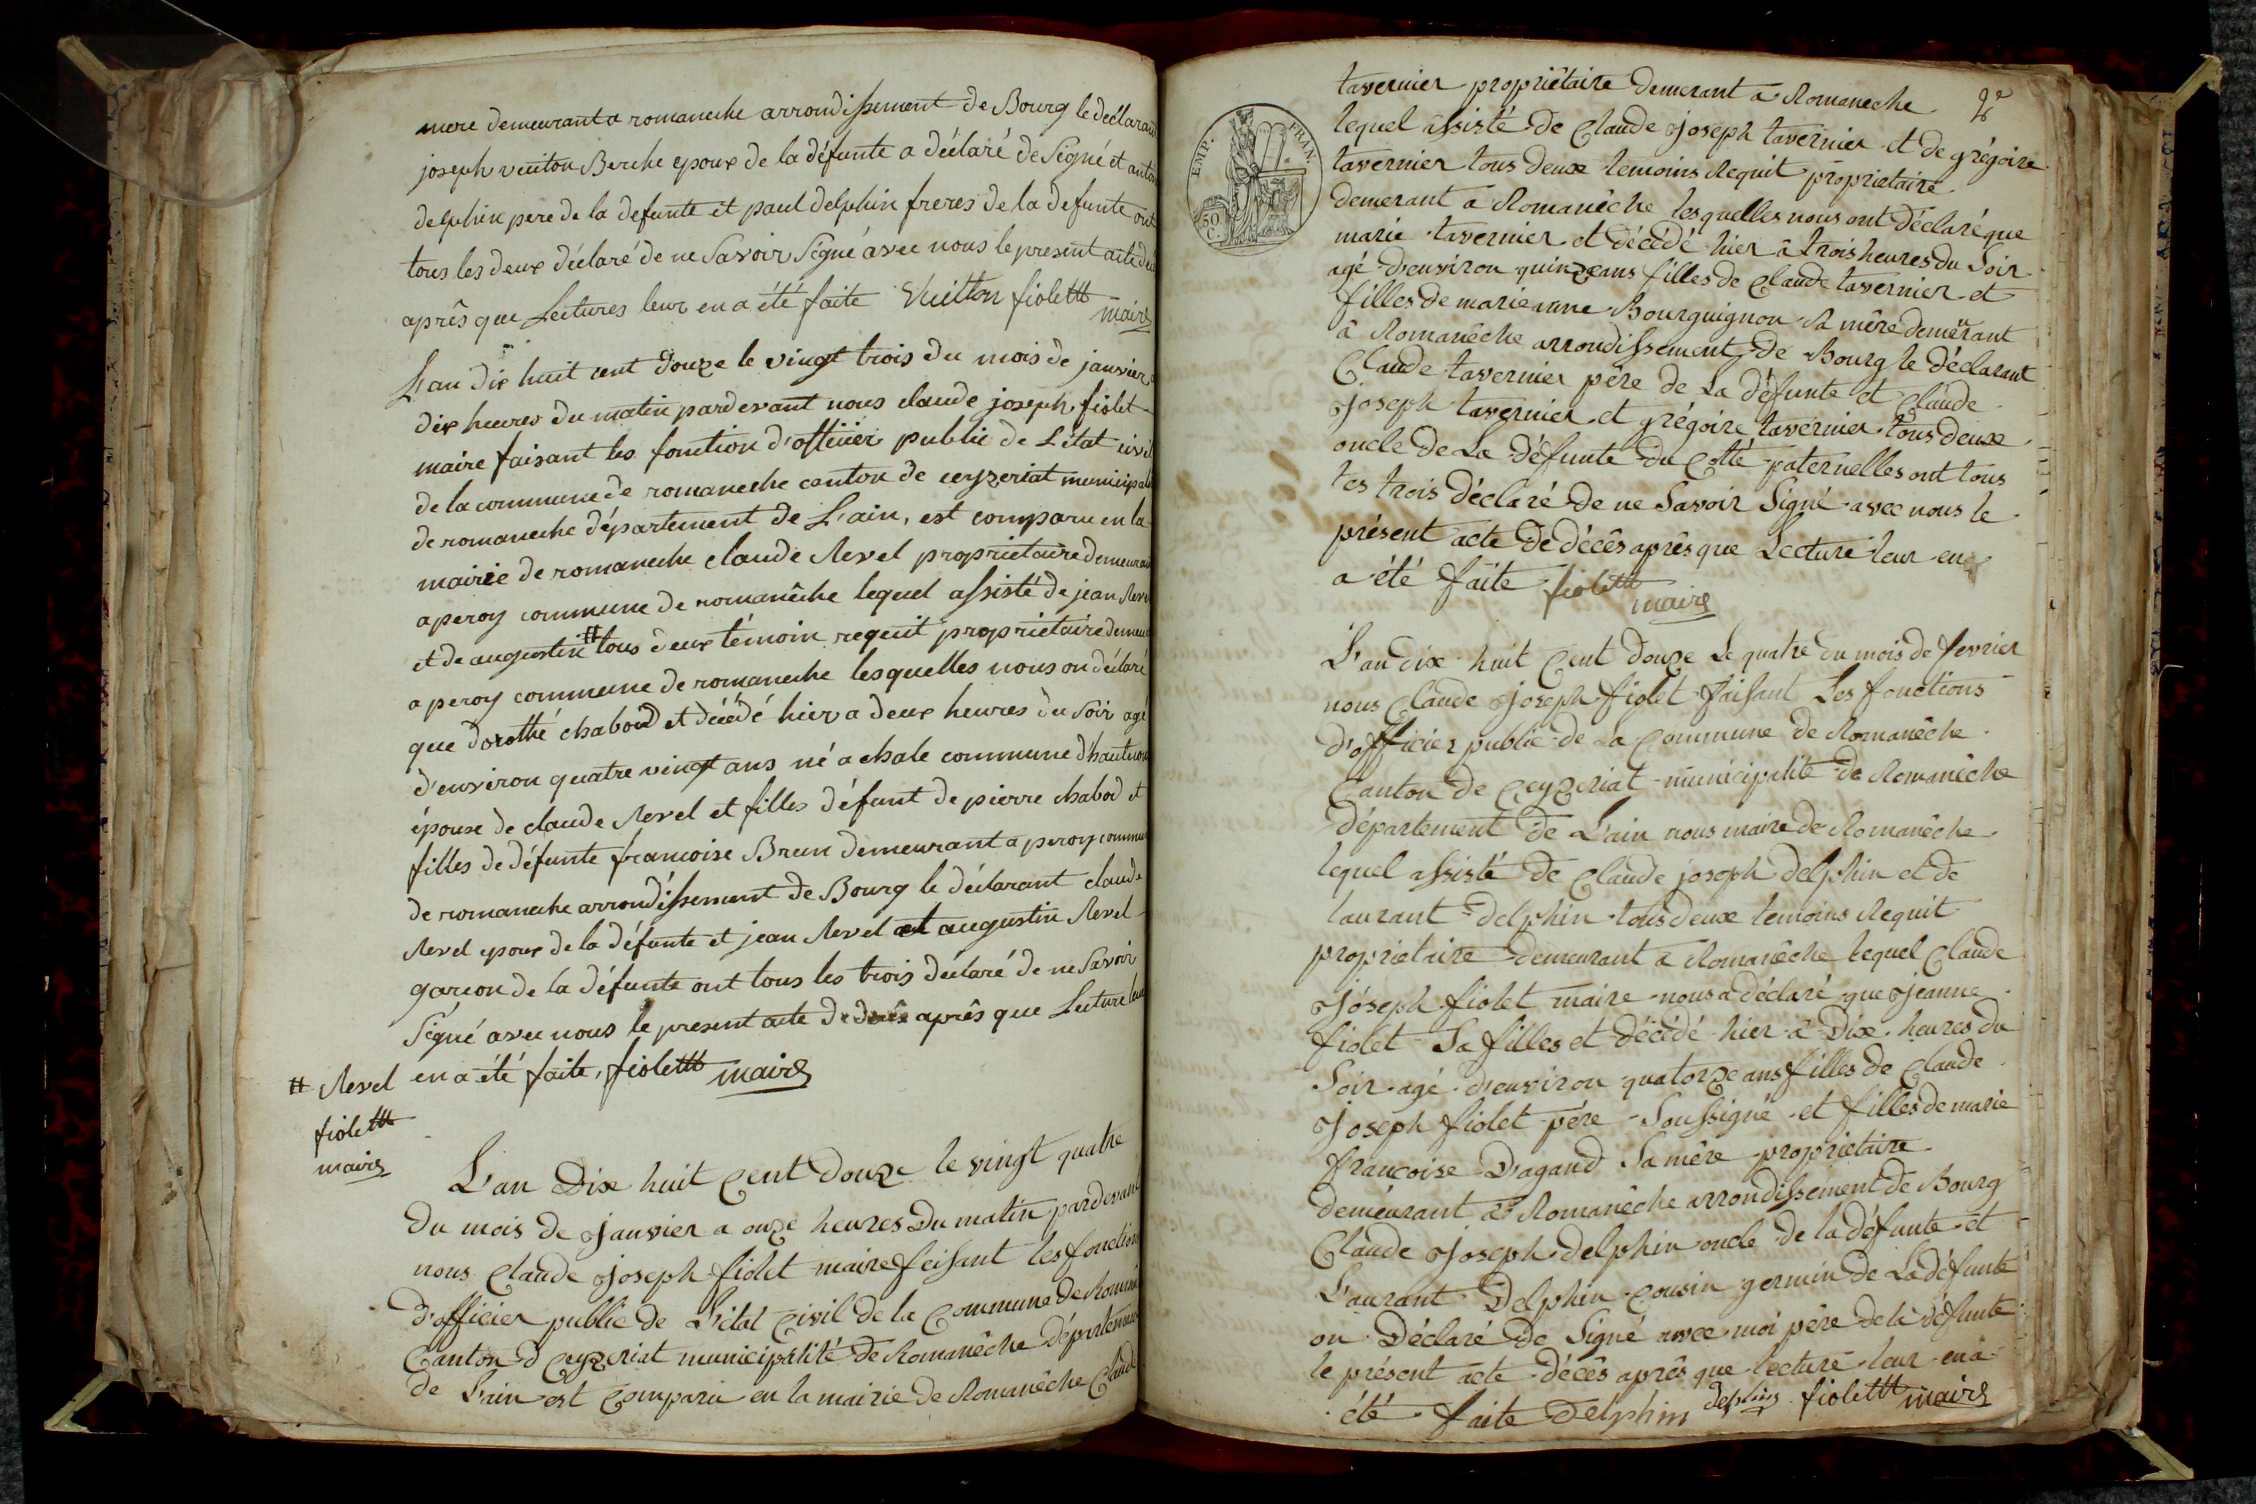 mere demeurant a romaneche arrondissement de Bourg le déclarant
joseph vuiton Berche epoux de la défunte a déclaré de Signé et anton
delphin pere de la defunte et paul delphin freres de la defunte ont
tous les deux déclaré de ne Savoir Signé avec nous le present acte de
aprês que Lectures leur en a été faite Vuitton fiolet
maire
L'an dix huit cent douze le vingt trois du mois de janvier
dix heures du matin pardevant nous claude joseph fiolet
maire faisant les fonction d'officier public de L'état civil
de la commune de romaneche canton de ceyzeriat municipal
de romaneche département de L'ain, est comparu en la
mairie de romaneche claude Revel proprietaire demeurant
a peroy commune de romanêche lequel assisté de jean Revel
et de augustin # tous deux témoin requit proprietaire demeur
a peroy commune de romaneche lesquelles nous on déclaré
que dorothé chaboud et décédé hier a deux heures du Soir agé
d'environ quatre vingt ans né a chale commune d'hautecou
épouse de claude Revel et filles défunt de pierre chabod et
filles de défunte francoise Brun demeurant a peroy commun
de romaneche arrondissement de Bourg le déclarant claude
Revel epoux de la défunte et jean Revel et augustin Revel
garcon de la défunte ont tous les trois déclaré de ne Savoir
Signé avec nous le present acte de décès aprês que Lecture leur
en a été faite, fiolet maire
# Revel
fiolet
maire
L'an Dix huit Cent Douze le vingt quatre
Du mois de janvier a onze heures Du matin pardevant
nous Claude joseph fiolet maire feisant les fonction
D'officier public de L'état Civil de la Commune de Romanê
Canton d Ceyzeriat municipalité de Romanêche Département
de L'ain est Comparu en la mairie de Romanêche Claude
EMP. FRAN.
50 C.
2e
tavernier propriétaire demerant a Romaneche
lequel assisté de Claude joseph tavernier et de grégoire
tavernier tous deux temoins Requit proprietaire
demerant a Romanêche lesquelles nous ont déclaré que
marie tavernier et décédé hier â trois heures du Soir
agé d'environ quinze ans filles de Claude tavernier et
filles de marie anne Bourguignon Sa mêre demeurant
â Romanêche arrondissement de Bourg le déclarant
Claude tavernier pêre de La défunte et Claude
joseph tavernier et grégoire tavernier tous deux
oncle de La défunte du Cotté paternelles ont tous
tes trois déclaré de ne Savoir Signé avec nous le
présent acte de décês aprês que Lecture leur en
a été faite fiolet
maire
L'an dix huit Cent douze Le quatre du mois de fevrier
nous Claude joseph fiolet faisant Les fonctions
d'officier public de La Commune de Romanêche
Canton de Ceyzeriat municipalité de Romanêche
département de L'ain nous maire de Romanêche
lequel assisté de Claude joseph delphin et de
laurant delphin tous deux temoins Requit
proprietaire demeurant a Romanêche lequel Claude
joseph fiolet maire nous a déclaré que jeanne
fiolet Sa filles et décédé hier â Dix heures du
Soir agé d'environ quatorze ans filles de Claude
joseph fiolet pére Soussigné et filles de marie
françoise Dagand Sa mêre proprietaire
demeurant â Romanêche arrondissement de Bourg
Claude joseph delphin oncle de la défunte et
Laurant Delphin Cousin germin de La défunte
on Déclaré de Signé avec moi pêre de la défunte
le présent acte décês aprês que lecture leur en a
été faite Delphin delphin fiolet maire